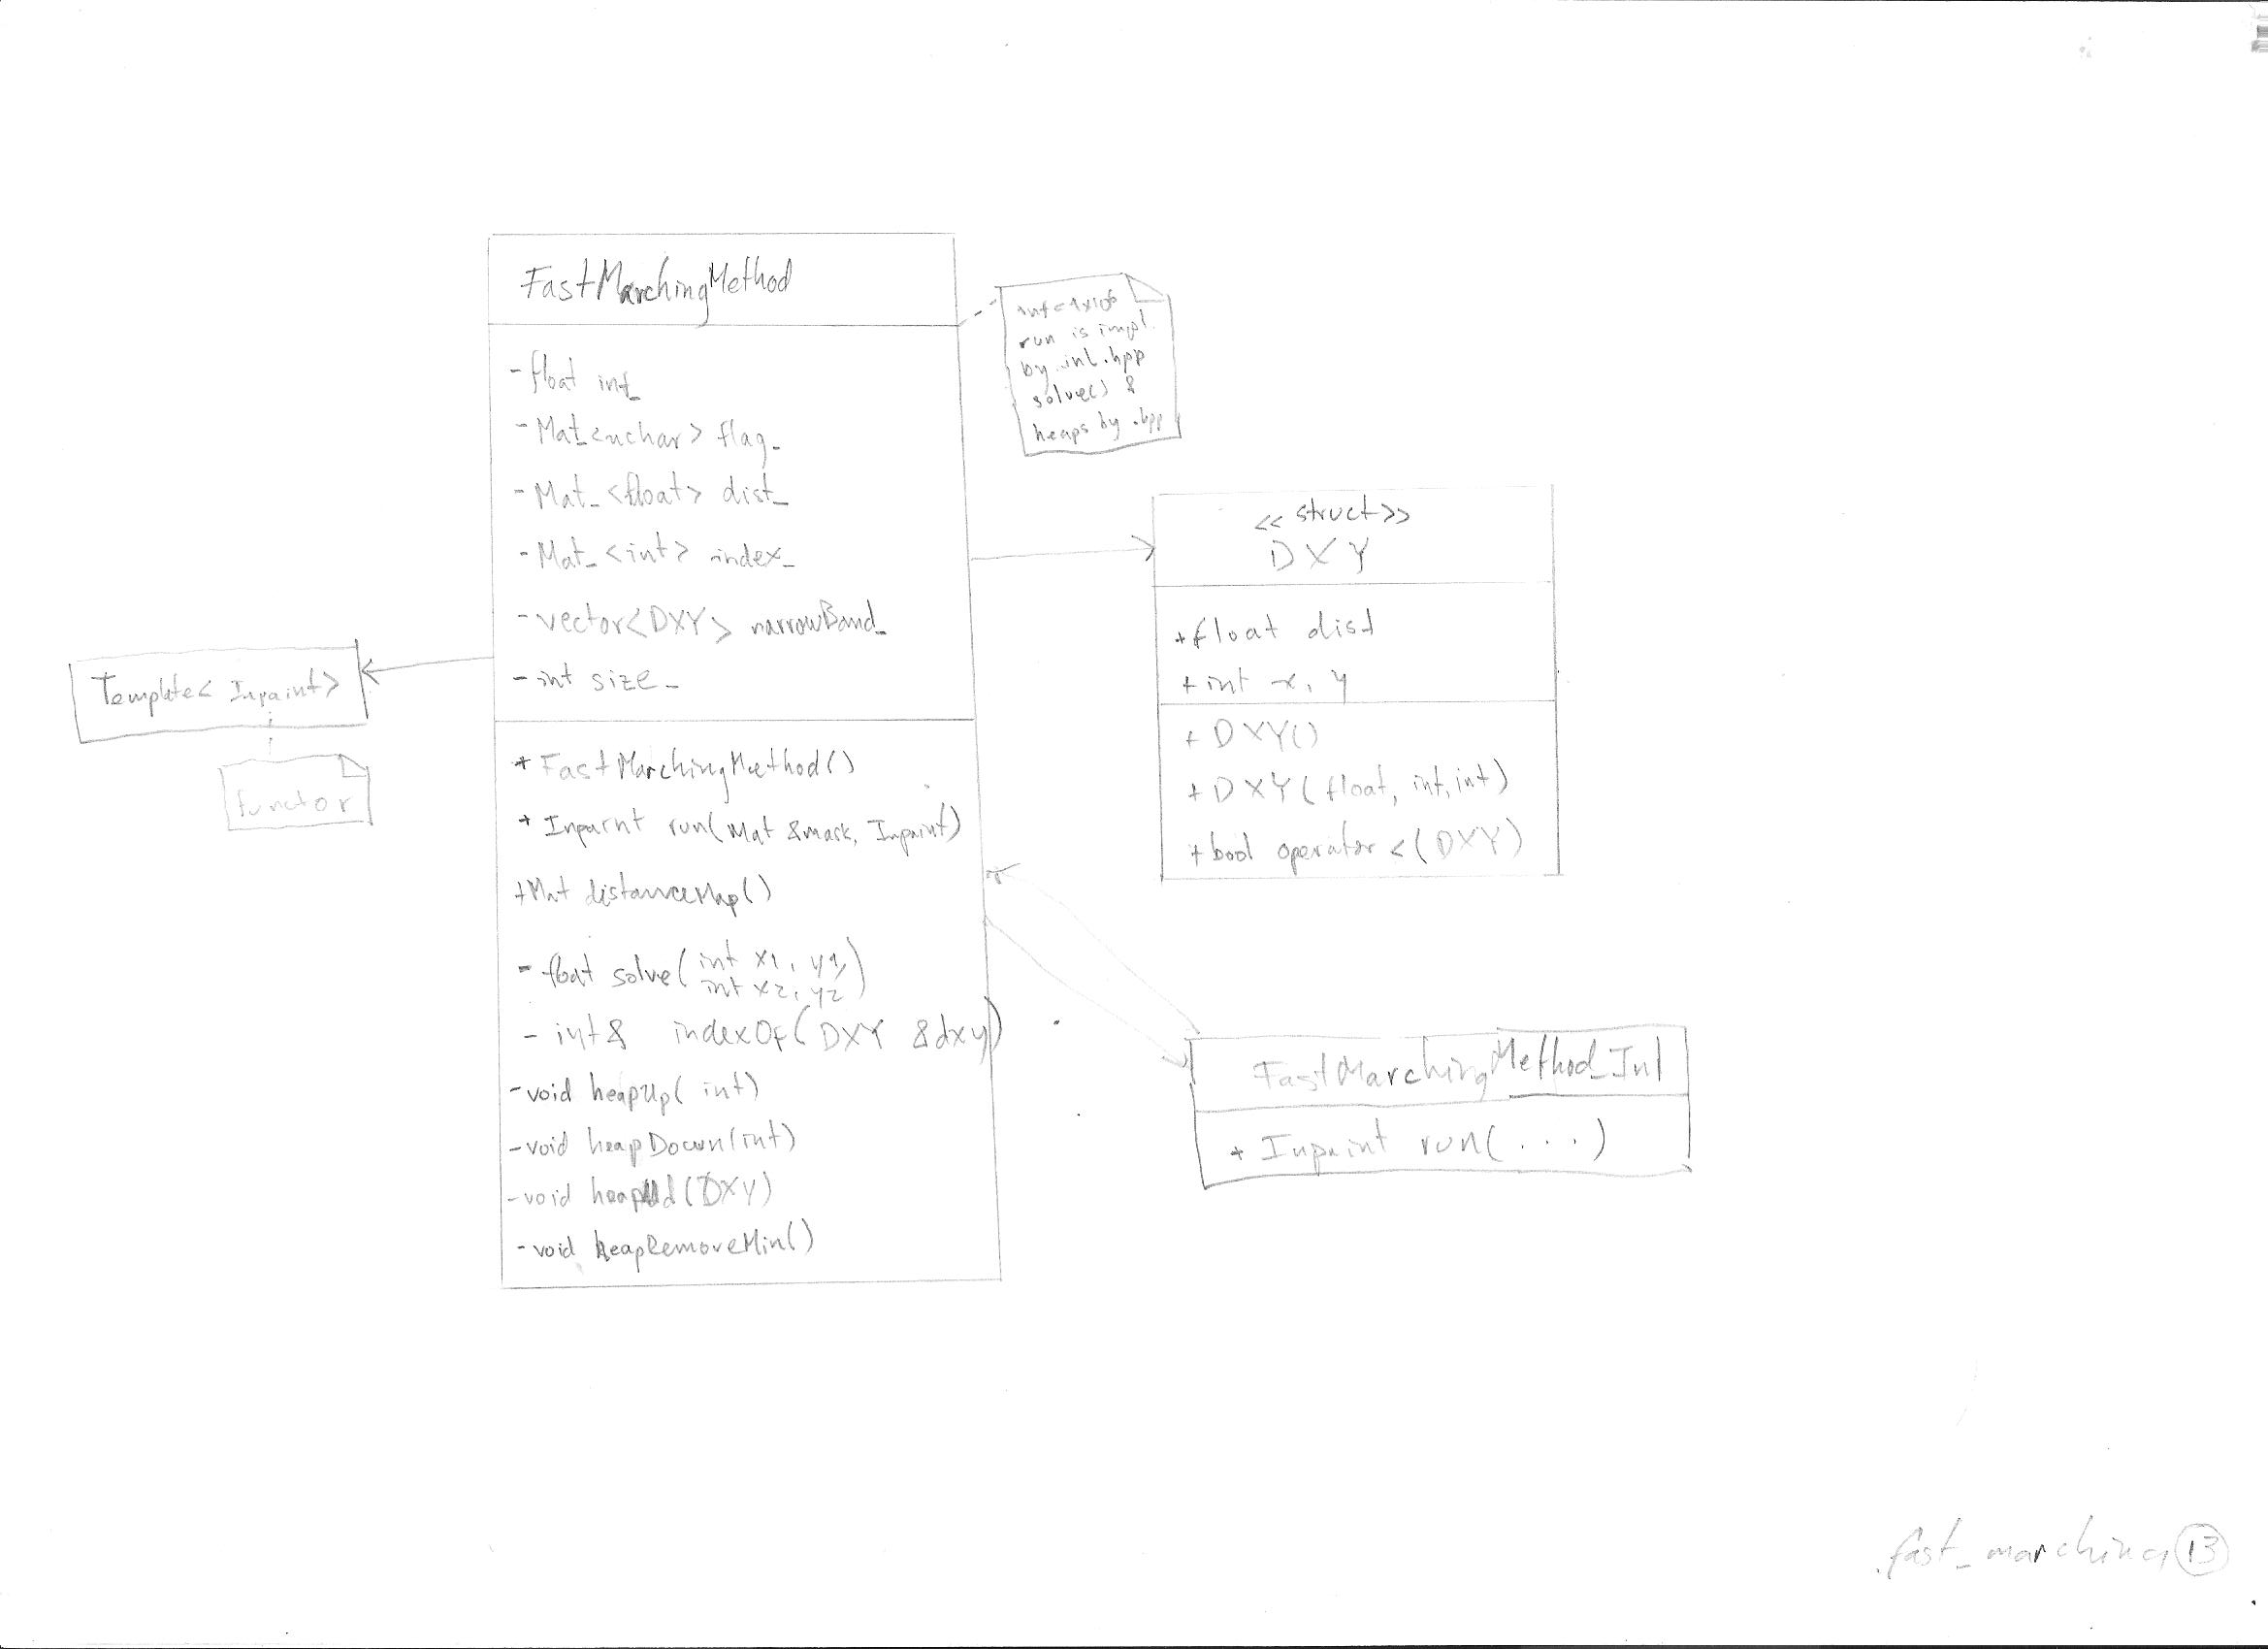 FastMarchingMethod
- float inf_
- Mat_<uchar> flag_
- Mat_<float> dist_
- Mat_<int> index_
- vector<DXY> narrowBand_
- int size_
+ FastMarchingMethod()
+ Inpaint run(Mat &mask, Inpaint)
+Mat distanceMap()
- float solve(int x1, y1,
int x2, y2)
- int& indexOf(DXY &dxy)
- void heapUp( int)
- void heapDown(int)
- void heapAdd(DXY)
- void heapRemoveMin()
inf=1x10^6
run is impl.
by inl.hpp
solve() &
heaps by .hpp
<< struct>>
DXY
+float dist
+ int x, y
+ DXY()
+ DXY( float, int, int)
+ bool operator <(DXY)
Template< Inpaint>
functor
FastMarchingMethod_Inl
+ Inpaint run( . . . )
fast_marching 13